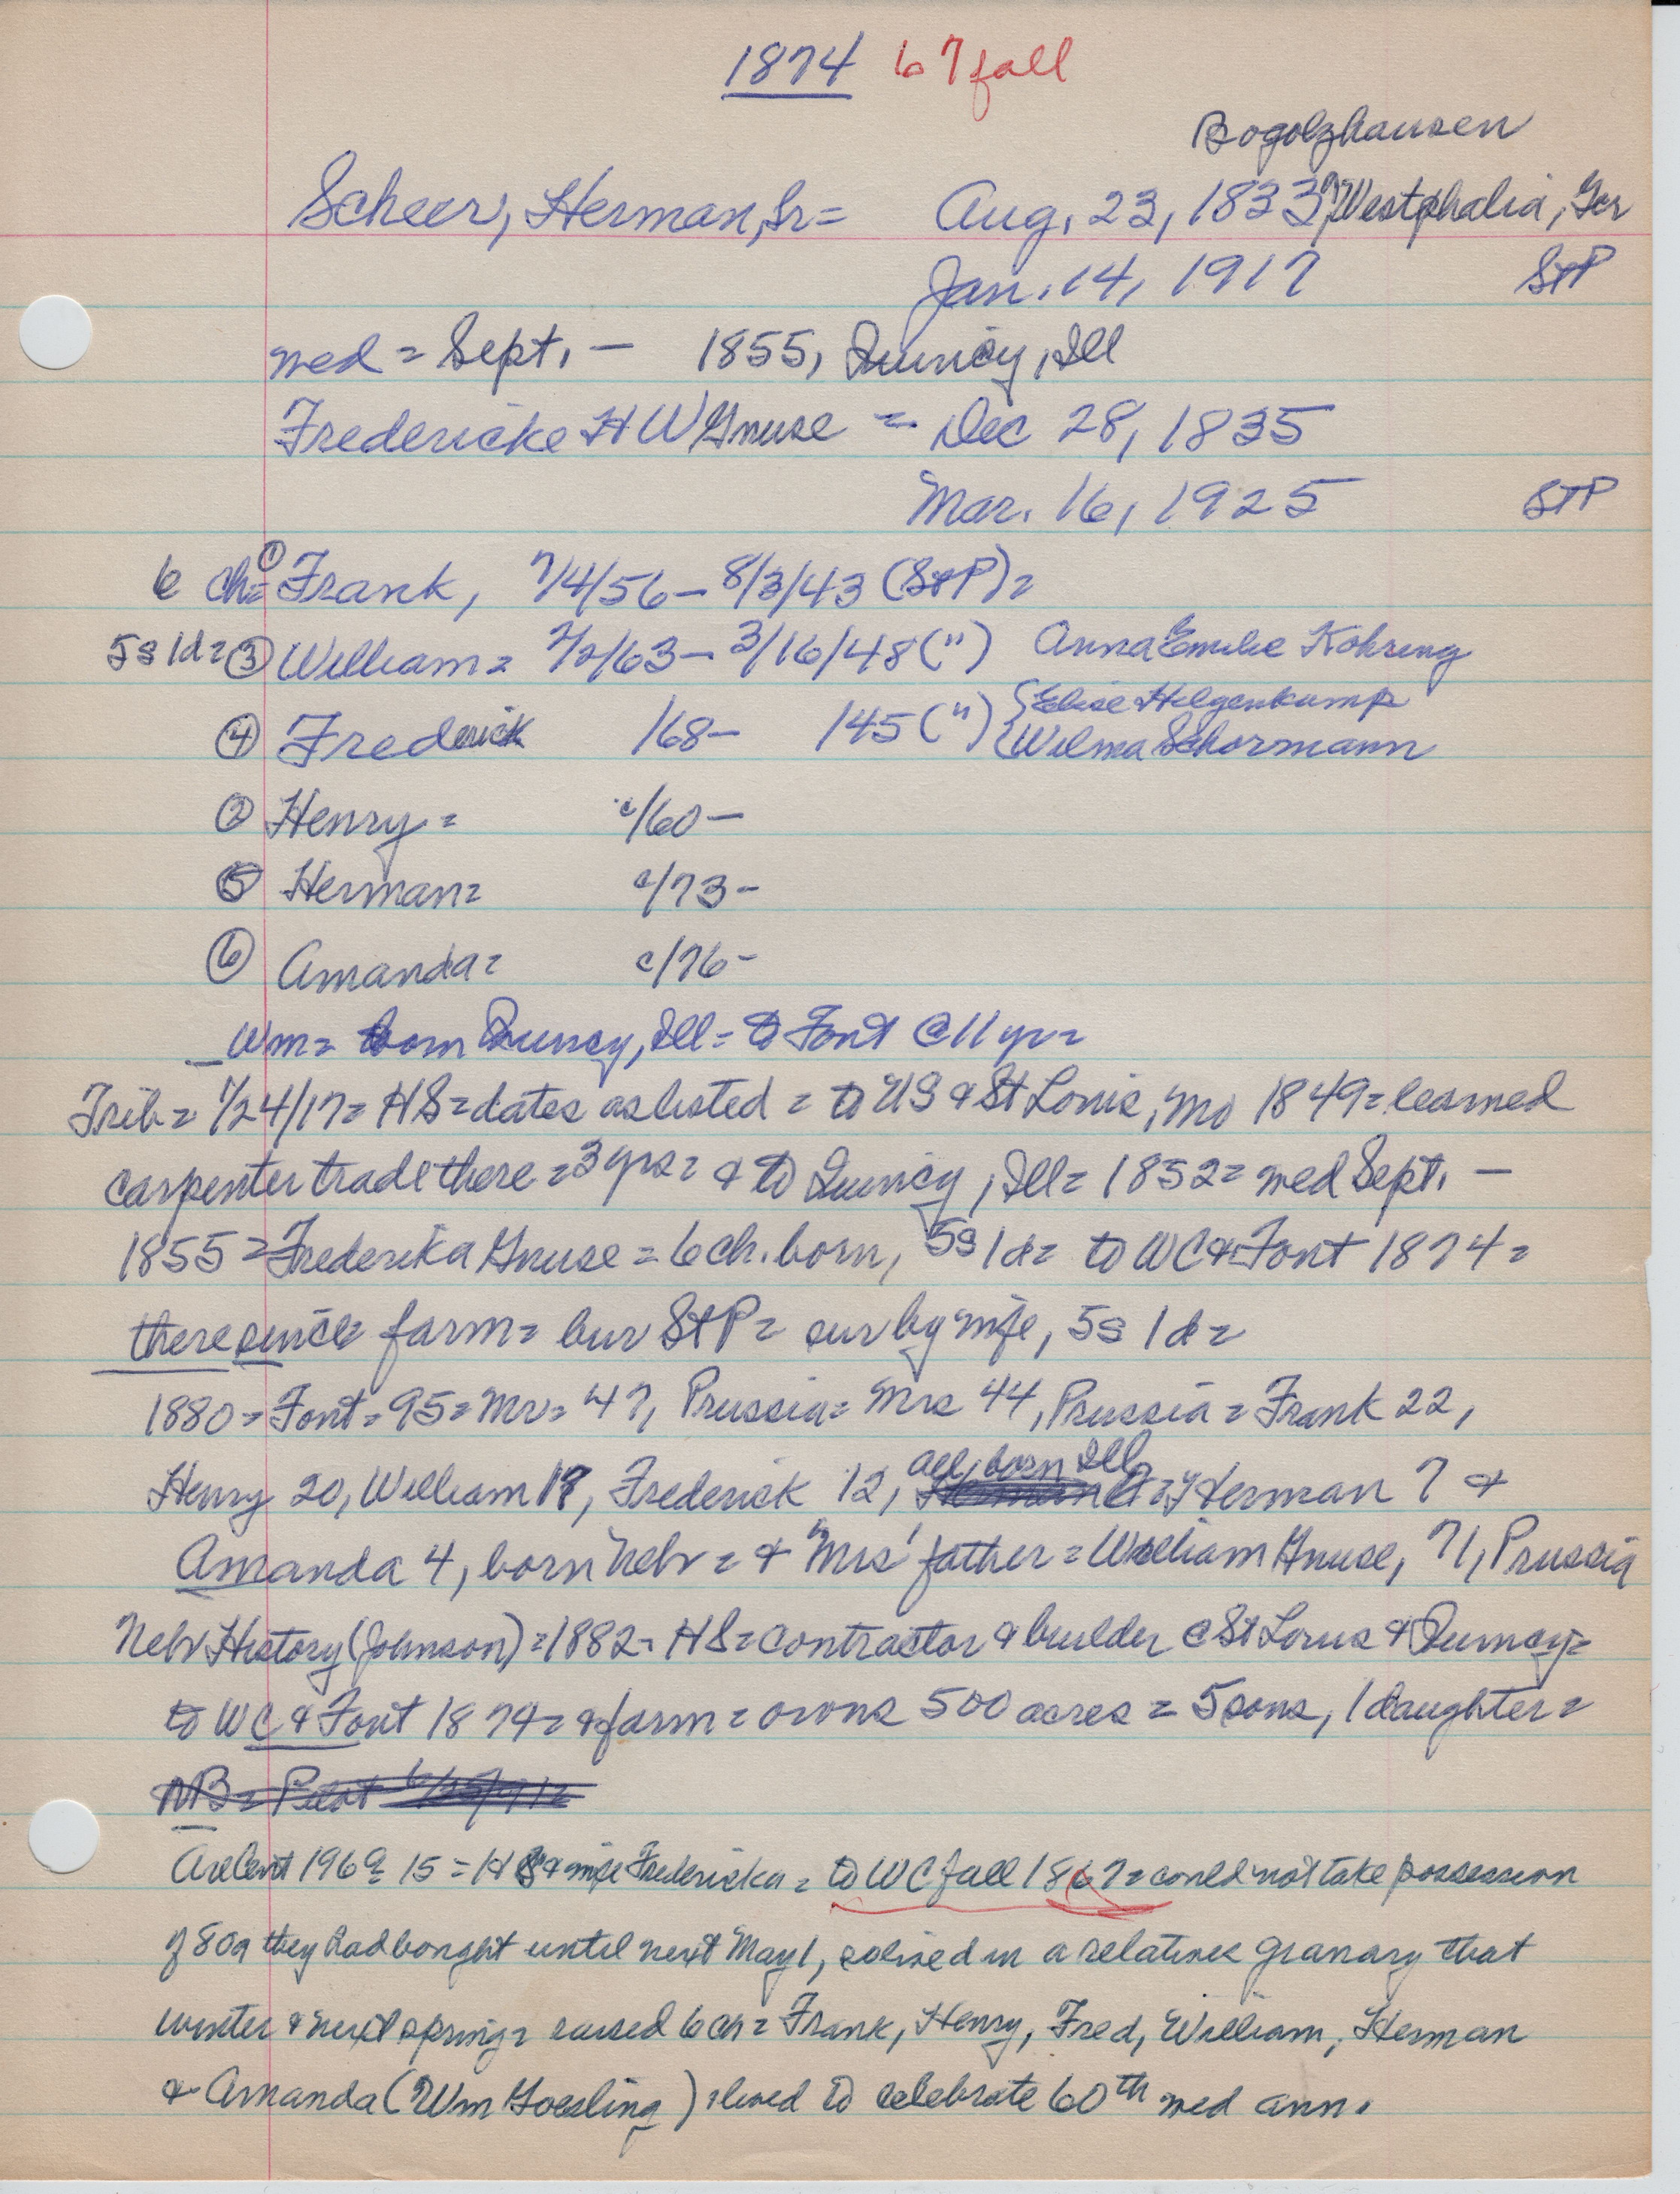 1874 67 fall
Bogolzhausen
Scheer, Herman, Sr = Aug. 23, 1833, Westphalia, Ger
Jan. 14, 1917 StP
med = Sept. — 1855, Quincy, Ill
Fredericke H W Gnuse = Dec 28, 1835
Mar. 16, 1925 STP
6 ch = ① Frank, 7/4/56 – 8/3/43 (StP) =
5s 1d = ③ William = 2/2/63 – 3/16/48 (") Anna Emilie Kohring
④ Frederick /68 – /45 (") { Elise Hilgenkamp
Wilma Schormann
② Henry = c/60 –
⑤ Herman = c/73 –
⑥ Amanda = c/76 –
Wm = born Quincy, Ill = to Font @ 11 yr =
Trib = 1/24/17 = HS = dates as listed = to US & St Louis, Mo 1849 = learned
carpenter trade there = 3 yrs = & to Quincy, Ill = 1852 = med Sept. —
1855 = Frederika Gnuse = 6 ch. born, 5s 1d = to WC & Font 1874 =
there since = farm = bur StP = sur by wife, 5s 1d =
1880 = Font = 95 = Mr = 47, Prussia = Mrs 44, Prussia = Frank 22,
Henry 20, William 17, Frederick 12, all born Ill = Herman 7 &
Amanda 4, born Nebr = & Mrs' father = William Gnuse, 71, Prussia
Nebr History (Johnson) = 1882 = HS = contractor & builder @ St Louis & Quincy =
to WC & Font 1874 = & farm = owns 500 acres = 5 sons, 1 daughter =
NB = Pilot
Arlent 1969 15 = HS & wife Fredericka = to WC fall 1867 = could not take possession
of 80a they had bought until next May 1, so lived in a relatives granary that
winter & next spring = raised 6 ch = Frank, Henry, Fred, William, Herman
& Amanda (Wm Goesling) = lived to celebrate 60th med ann.